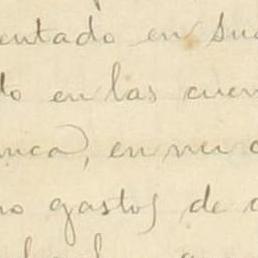 entado en su
do en las cuen
nca), en vez d
no gastos de